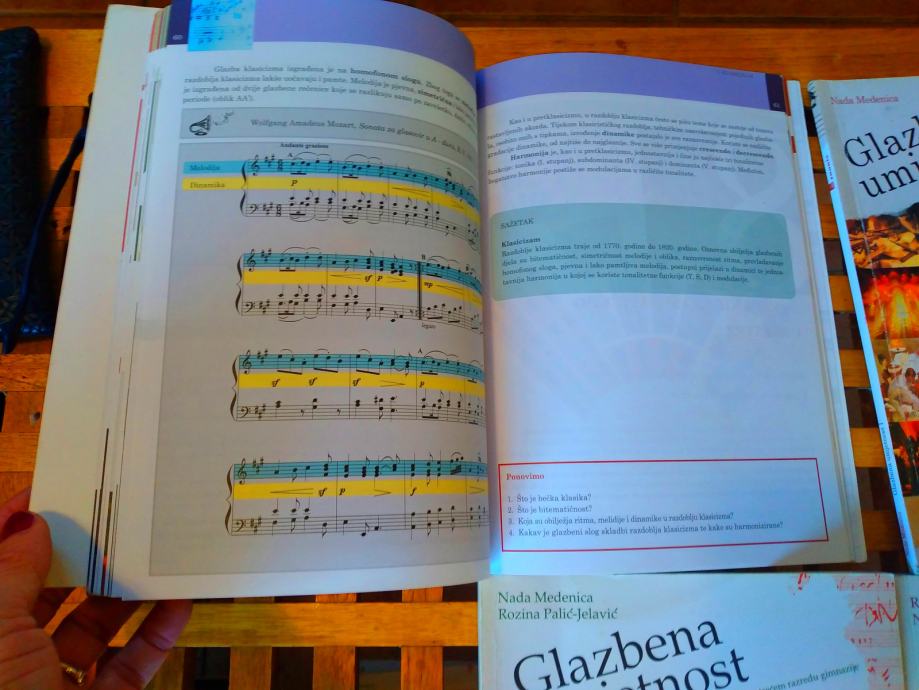 60
Glazba klasicizma izgrađena je na homofonom slogu. Zbog toga se
razdoblja klasicizma lakše uočavaju i pamte. Melodija je pjevna, simetrična
je izgrađena od dvije glazbene rečenice koje se razlikuju samo po završetku,
periode (oblik AA').
Wolfgang Amadeus Mozart, Sonata za glasovir u A - duru,
Andante grazioso
Melodija
Dinamika
A
p
sf
p
B
mp
legato
A
sf
sf
sf
p
sf
p
f
61
Kao i u pretklasicizmu, u razdoblju klasicizma često se pišu teme koje se sastoje od tonova
rastavljenih akorda. Tijekom klasicističkog razdoblja, tehničkim usavršavanjem pojedinih glazba-
la, osobito onih s tipkama, izvođenje dinamike postajalo je sve raznovrsnije. Koriste se različite
gradacije dinamike, od najtiše do najglasnije. Sve se više primjenjuje crescendo i decrescendo.
Harmonija je, kao i u pretklasicizmu, jednostavnija i čine ju najčešće tri tonalitetne
funkcije: tonika (I. stupanj), subdominanta (IV. stupanj) i dominanta (V. stupanj). Međutim,
bogatstvo harmonije postiže se modulacijama u različite tonalitete.
SAŽETAK
Klasicizam
Razdoblje klasicizma traje od 1770. godine do 1820. godine. Osnovna obilježja glazbenih
djela su bitematičnost, simetričnost melodije i oblika, razmjernost ritma, prevladavanje
homofonog sloga, pjevna i lako pamtljiva melodija, postupni prijelazi u dinamici te jednos-
tavnija harmonija u kojoj se koriste tonalitetne funkcije (T, S, D) i modulacije.
Ponovimo
1. Što je bečka klasika?
2. Što je bitematičnost?
3. Koja su obilježja ritma, melodije i dinamike u razdoblju klasicizma?
4. Kakav je glazbeni slog skladbi razdoblja klasicizma te kako su harmonizirane?
Nada Medenica
Glazb
umj
Nada Medenica
Rozina Palić-Jelavić
Glazbena
jetnost
ećem razredu gimnazije